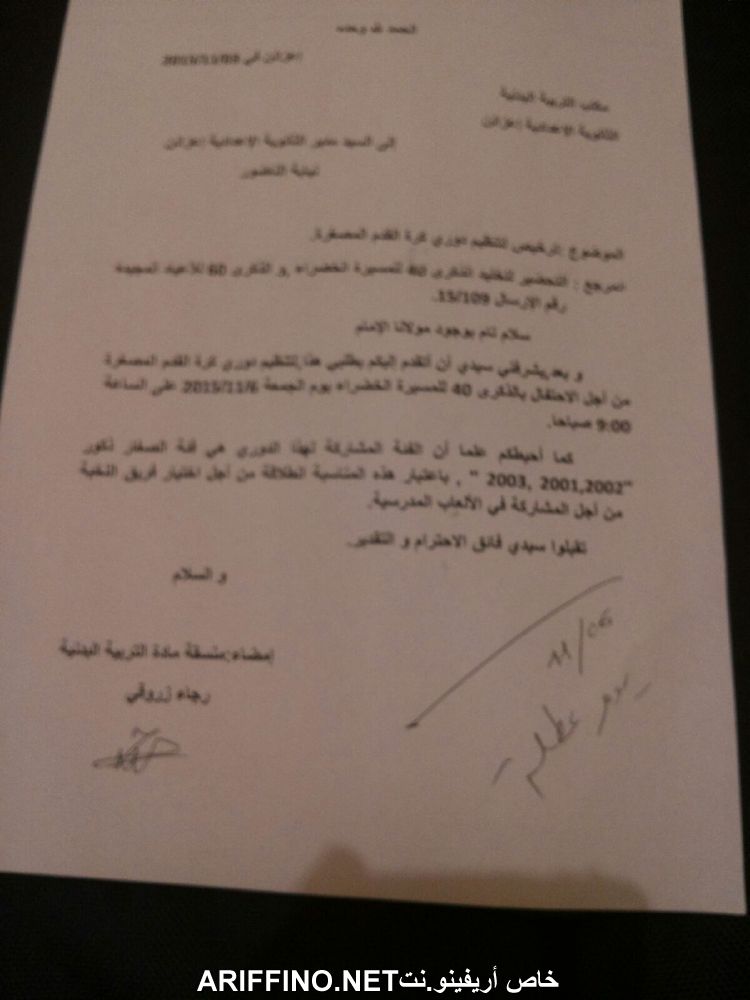 الحمد لله وحده
إعزانن في
مكتب التربية البدنية
الثانوية الإعدادية إعزانن
إلى السيد مدير الثانوية الإعدادية إعزانن
نيابة الناضور
الموضوع :ترخيص لتنظيم دوري كرة القدم المصغرة.
المرجع : التحضير لتخليد الذكرى 40 للمسيرة الخضراء ,و الذكرى 60 للأعياد المجيدة
رقم الإرسال 15/109.
سلام تام بوجود مولانا الإمام
و بعد,يشرفني سيدي أن أتقدم إليكم بطلبي هذا,لتنظيم دوري كرة القدم المصغرة
من أجل الاحتفال بالذكرى 40 للمسيرة الخضراء يوم الجمعة 2015/11/6 على الساعة
9:00 صباحا.
كما أحيطكم علما أن الفئة المشاركة لهذا الدوري هي فئة الصغار ذكور
"2003, 2001,2002 " , باعتبار هذه المناسبة انطلاقة من أجل اختيار فريق النخبة
من أجل المشاركة في الألعاب المدرسية.
تقبلوا سيدي فائق الاحترام و التقدير.
و السلام
إمضاء:منسقة مادة التربية البدنية
رجاء زروقي
11/06
يوم عطلة
خاص أريفينو.نت ARIFFINO.NET